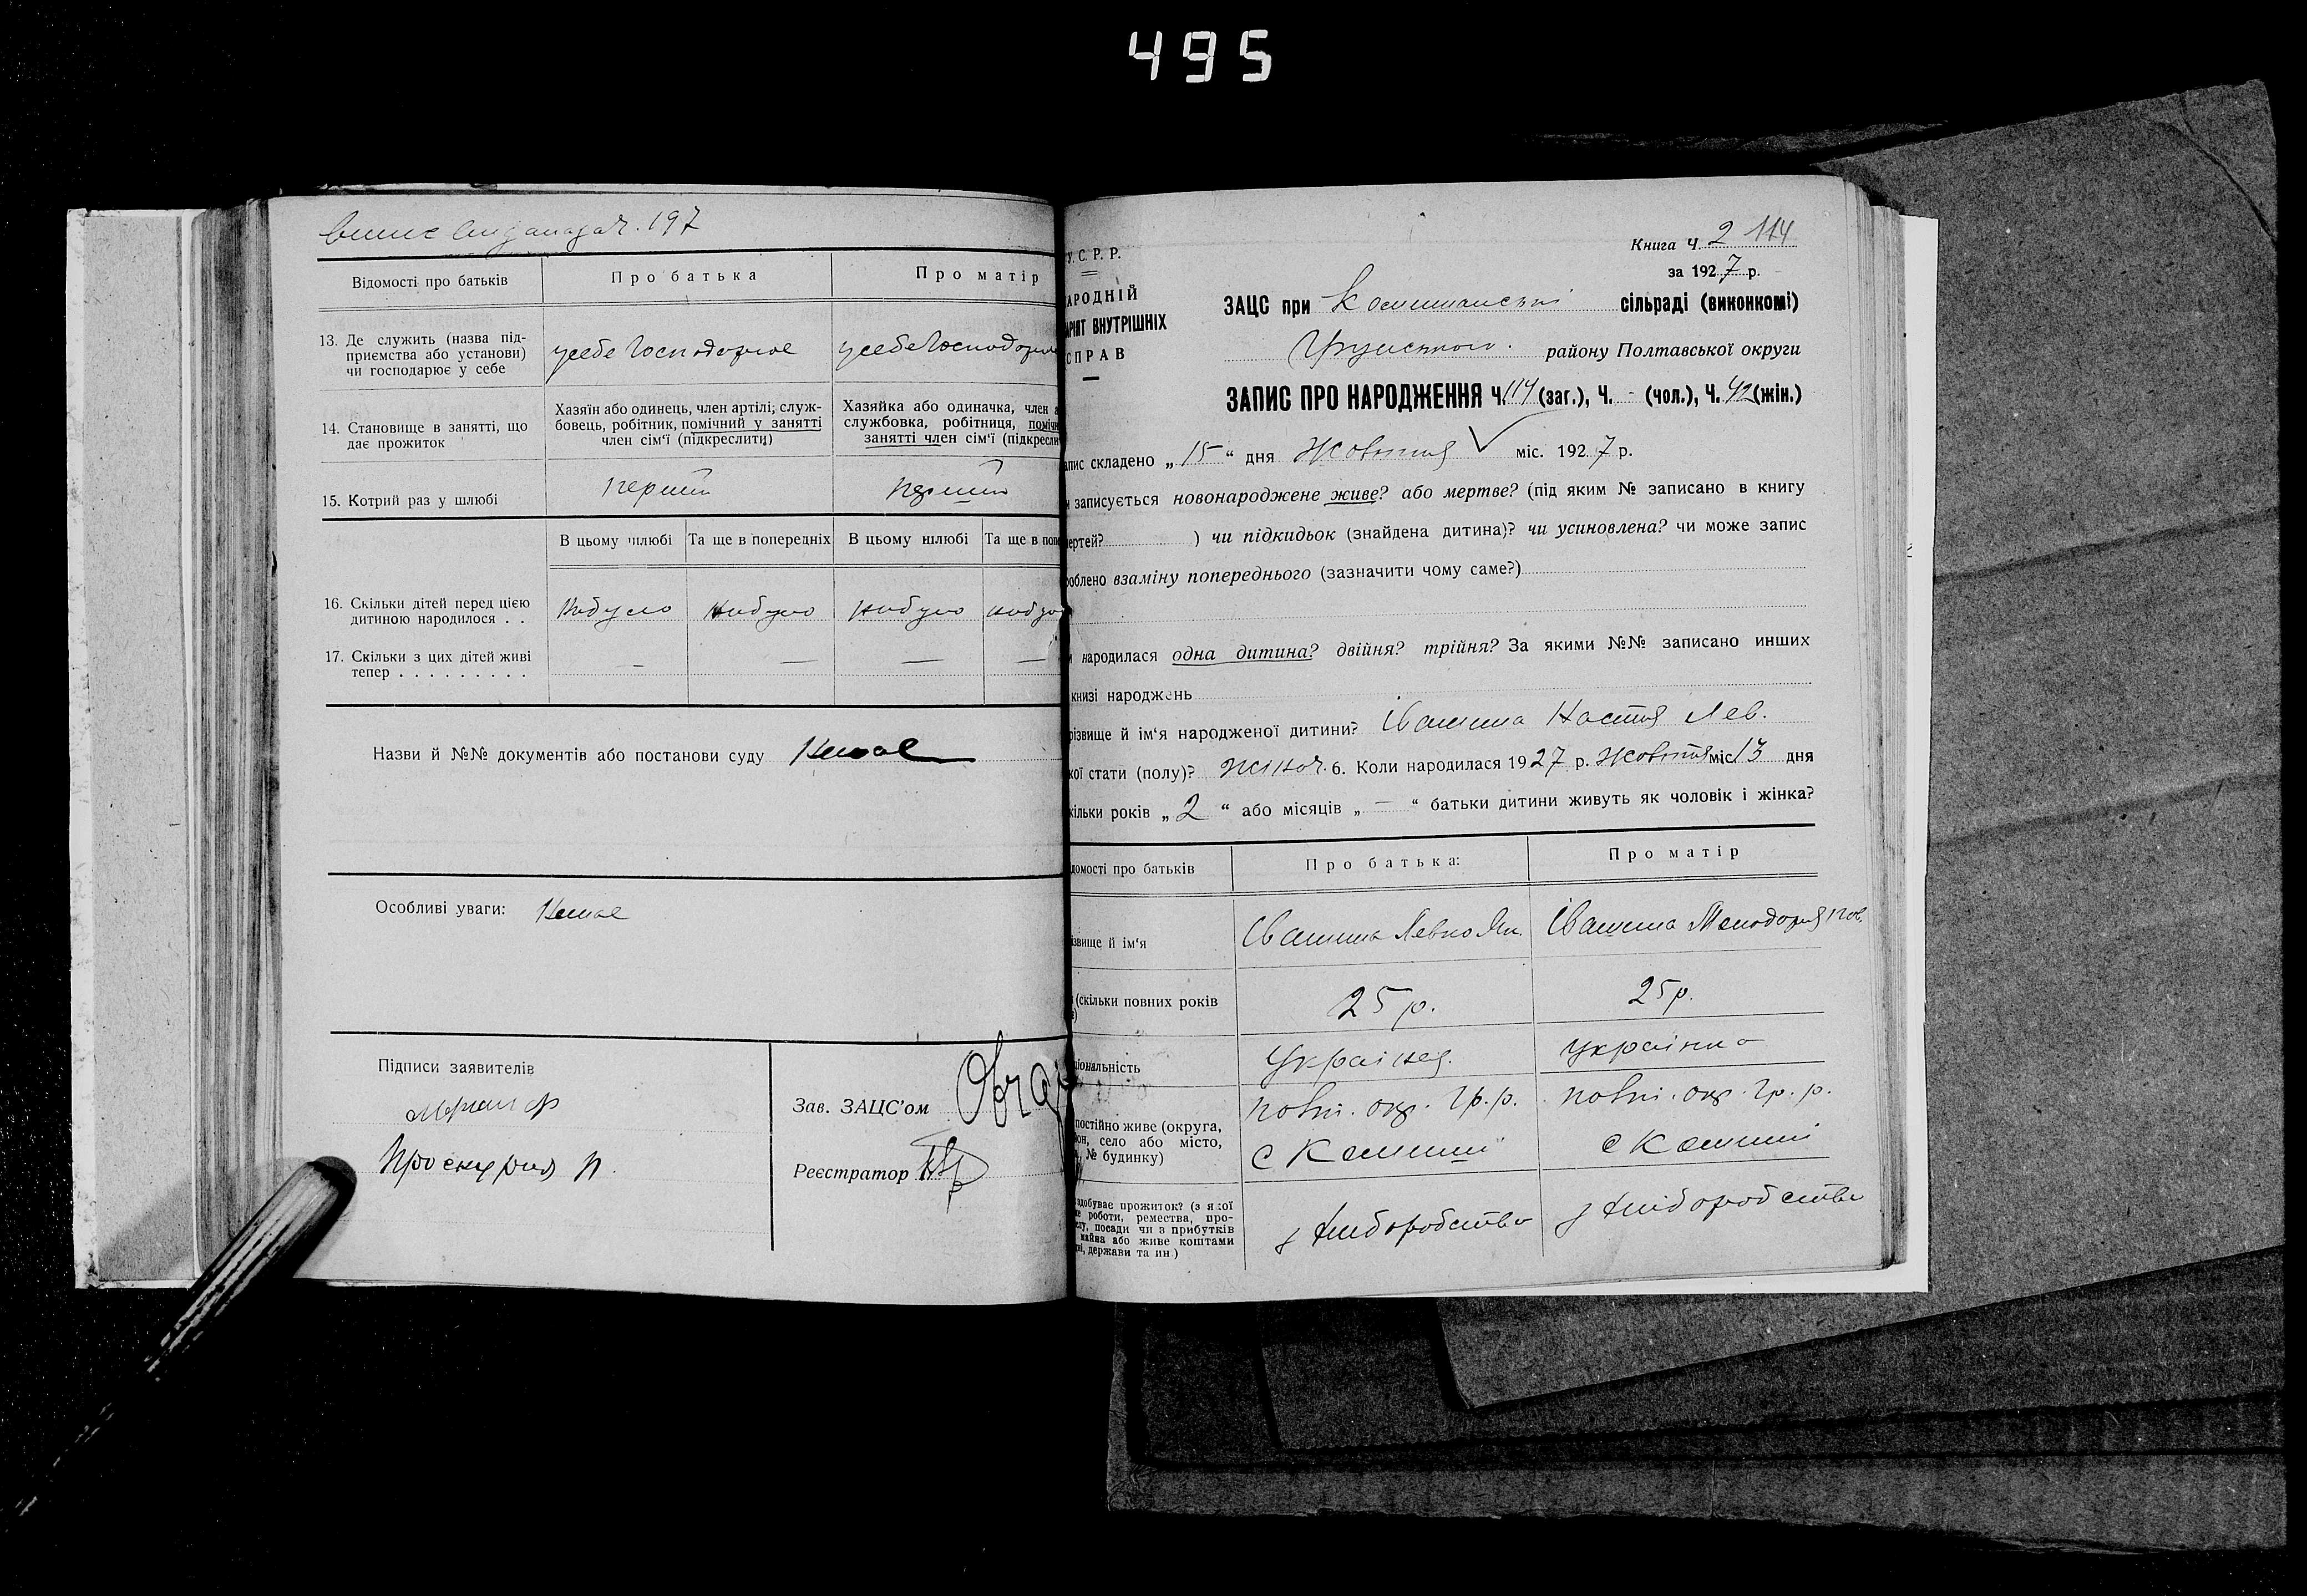 495
197
Відомості про батьків
Про батька
Про матір
13. Де служить (назва під-
приємства або установи)
чи господарює у себе
усебе Господорює
усебе Господорює
14. Становище в занятті, що
дає прожиток
Хазяїн або одинець, член артілі; служ-
бовець, робітник, помічний у занятті
член сім'ї (підкреслити)
Хазяйка або одиначка, член а
службовка, робітниця, поміч
занятті член сім'ї (підкресли
15. Котрий раз у шлюбі
перший
перший
В цьому шлюбі
Та ще в попередніх
В цьому шлюбі
Та ще в поп
16. Скільки дітей перед цією
дитиною народилося . .
Небуло
небуло
небуло
небуло
17. Скільки з цих дітей живі
тепер . . . . . . . . .
— — — —
Назви й №№ документів або постанови суду Немає
Особливі уваги: Немає
Підписи заявителів
Проскурня П.
Зав. ЗАЦС'ом
Реєстратор
У. С. Р. Р.
АРОДНІЙ
АРІЯТ ВНУТРІШНІХ
СПРАВ
Книга Ч. 2 114
за 1927 р.
ЗАЦС при сільраді (виконкомі)
району Полтавської округи
ЗАПИС ПРО НАРОДЖЕННЯ Ч. 114 (заг.), Ч. - (чол.), Ч. 42 (жін.)
апис складено „15“ дня Жовтня міс. 1927 р.
и записується новонароджене живе? або мертве? (під яким № записано в книгу
мертей? ) чи підкидьок (знайдена дитина)? чи усиновлена? чи може запис
роблено взаміну попереднього (зазначити чому саме?)
и народилася одна дитина? двійня? трійня? За якими №№ записано инших
книзі народжень
різвище й ім'я народженої дитини? Івашина Настя Лев.
кої стати (полу)? жіноч. 6. Коли народилася 1927 р. Жовтня міс 13 дня
кільки років „2“ або місяців „—“ батьки дитини живуть як чоловік і жінка?
домості про батьків
Про батька:
Про матір
звище й ім'я
Івашина Левко
Івашина
(скільки повних років
25 р.
25 р.
ціональність
Українец.
Українка
постійно живе (округа,
йон, село або місто,
№ будинку)
полт. окр. Гр. р.
полт. окр. Гр. р.
с Комиші
с Комиші
здобуває прожиток? (з якої
ме роботи, ремества, про-
лу, посади чи з прибутків
майна або живе коштами
ні, держави та ин.)
з хліборобства
з хліборобства